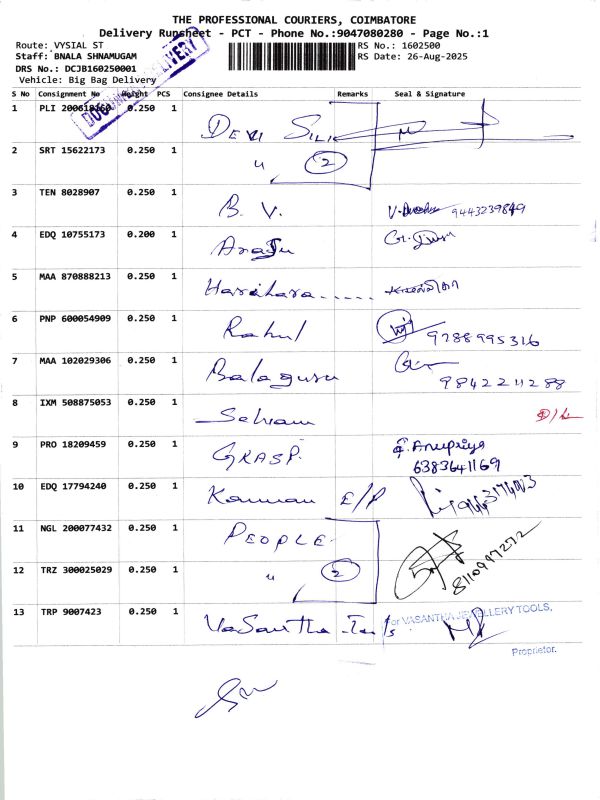 THE PROFESSIONAL COURIERS, COIMBATORE
Delivery Runsheet - PCT - Phone No.:9047080280 - Page No.:1
Route: VYSIAL ST
RS No.: 1602500
Staff: BNALA SHNAMUGAM
RS Date: 26-Aug-2025
DRS No.: DCJB160250001
Vehicle: Big Bag Delivery
S No Consignment No Weight PCS Consignee Details Remarks Seal & Signature
1 PLI 0.250 1 Devi
2 SRT 15622173 0.250 1 〃 2
3 TEN 8028907 0.250 1 B. V. 9443239849
4 EDQ 10755173 0.200 1
5 MAA 870888213 0.250 1 Harihara.....
6 PNP 600054909 0.250 1 Rahul 9788995316
7 MAA 102029306 0.250 1 Balaguru 9842211288
8 IXM 508875053 0.250 1 Selvam
9 PRO 18209459 0.250 1 GRASP. Anupriya
6383641169
10 EDQ 17794240 0.250 1 Kannan E/P
11 NGL 200077432 0.250 1 PEOPLE
12 TRZ 300025029 0.250 1 〃 2 8110997272
13 TRP 9007423 0.250 1 Vasantha Tools
For VASANTHA JEWELLERY TOOLS,
Proprietor.